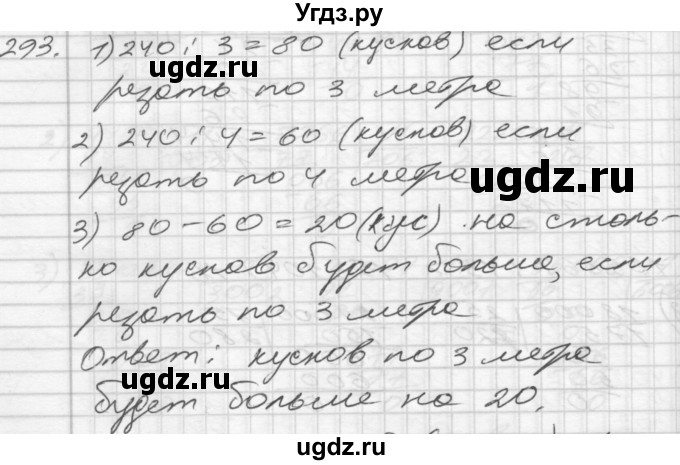 Угдз.ру
293. 1) 240 : 3 = 80 (кусков) если
ugdz.ru
резать по 3 метра
2) 240 : 4 = 60 (кусков) если
ugdz.ru
резать по 4 метра
ugdz.ru
3) 80 - 60 = 20 (кус) на столь-
ко кусков будет больше, если
ugdz.ru
резать по 3 метра
Ответ: кусков по 3 метра
ugdz.ru
будет больше на 20.
ugdz.ru